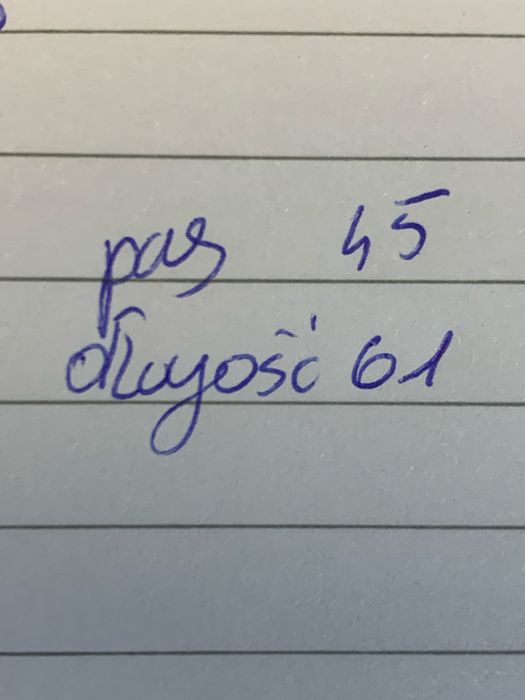 pas 45
długość 61